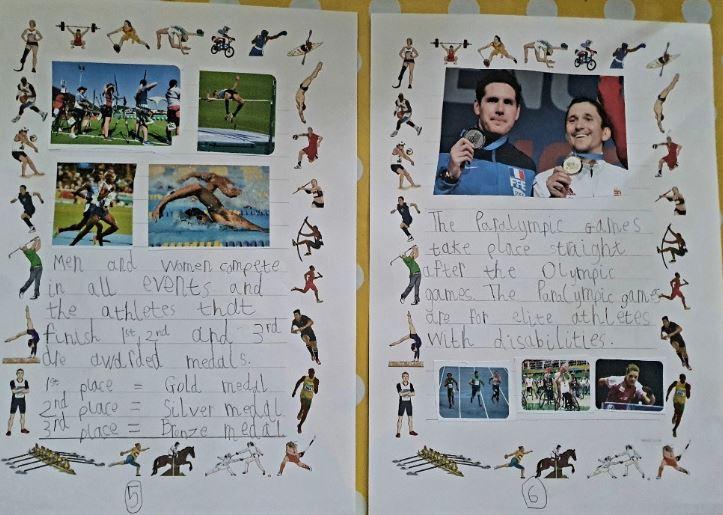 Men and women compete
in all events and
the athletes that
finish 1st, 2nd and 3rd
are awarded medals.
1st place = Gold medal
2nd place = Silver medal
3rd place = Bronze medal
5
FFE
The Paralympic games
take place straight
after the Olympic
games. The Paralympic games
are for elite athletes
with disabilities.
6